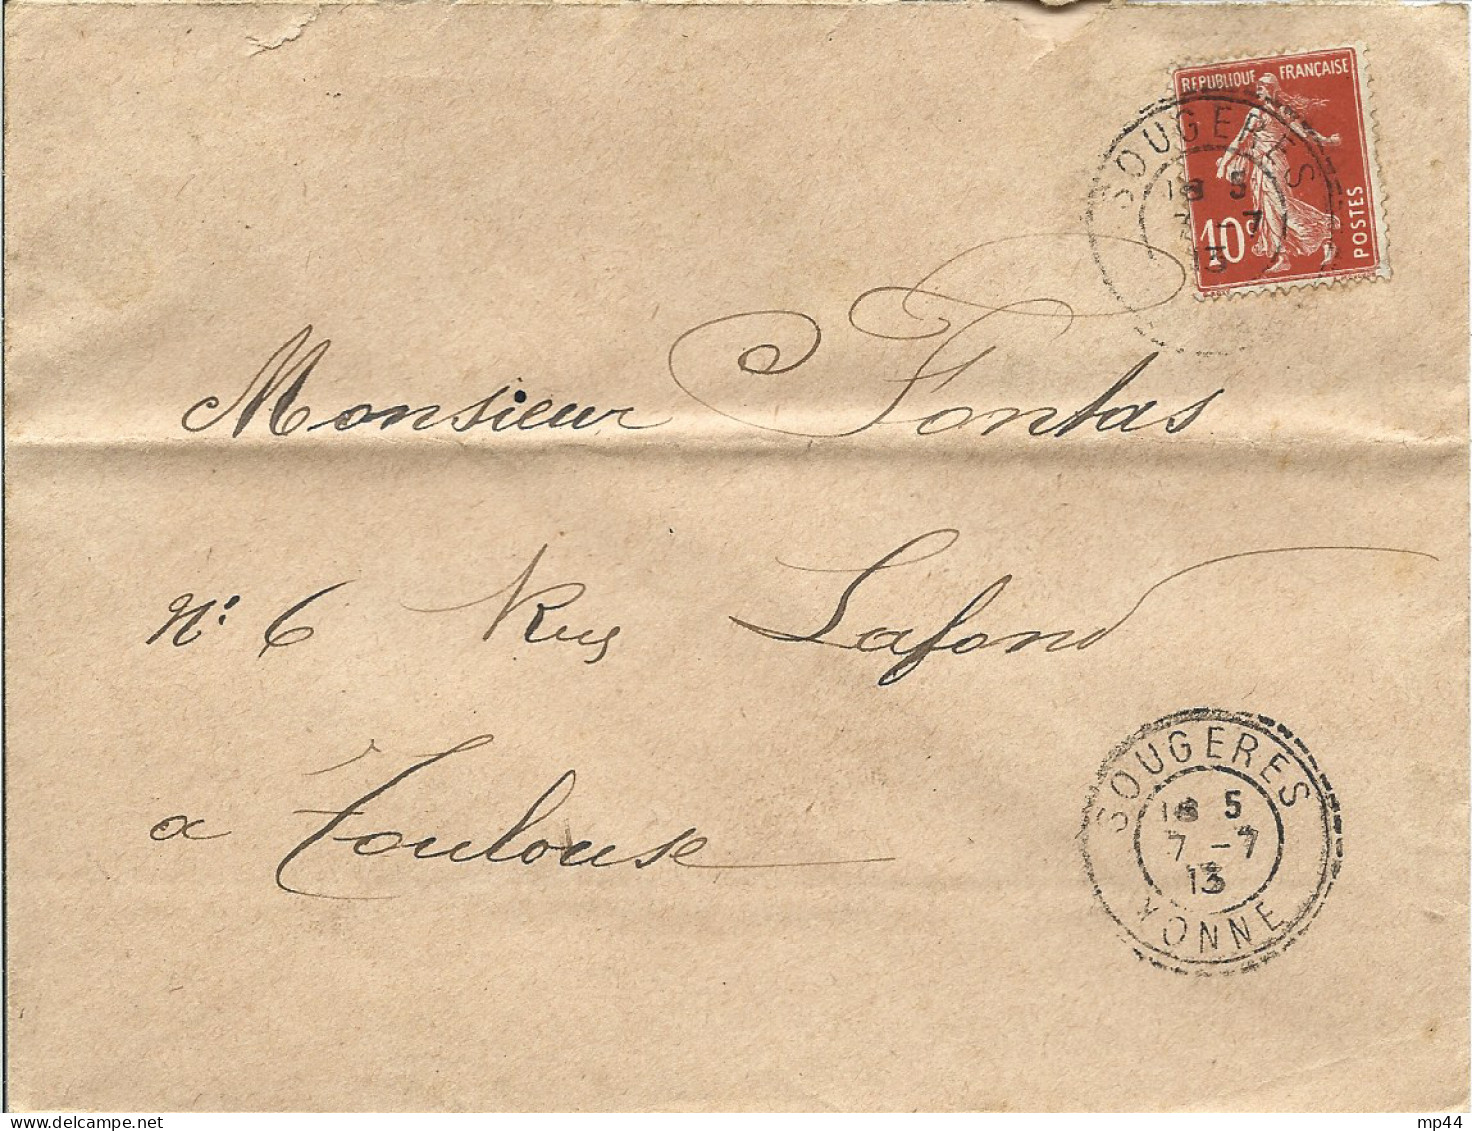 REPUBLIQUE FRANÇAISE
10c
POSTES
SOUGERES
7 - 7
13
Monsieur Fontas
N: 6 Rue Lafond
a Toulouse
SOUGERES
5
7 - 7
13
YONNE
mp44